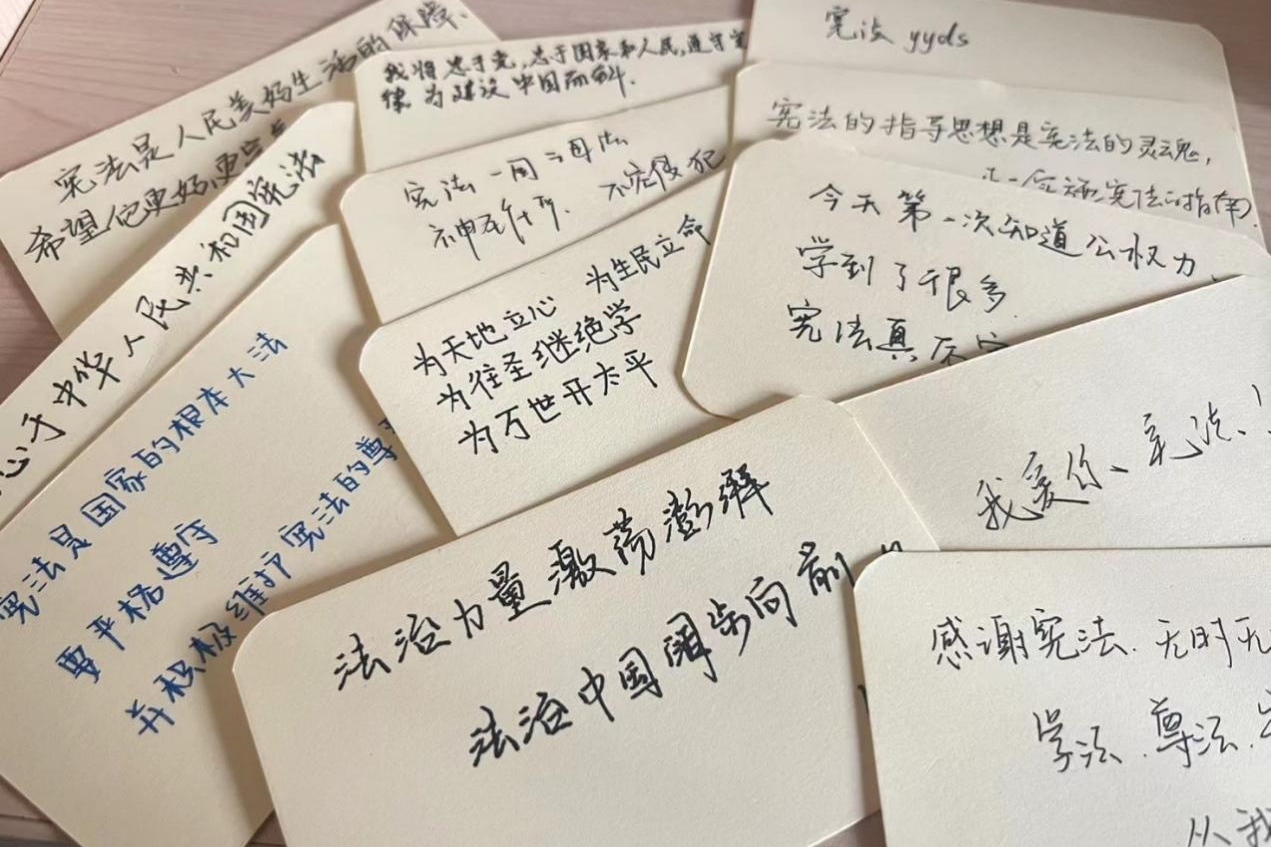 宪法是人民美好生活的保障.
希望他更好,更完
我将忠于党,忠于国家和人民,遵守宪
律.为建设中国而奋斗.
宪法 yyds
宪法的指导思想是宪法的灵魂,
宪法的指南
宪法一周
神圣 不容侵犯
今天第一次知道公权力、
学到了很多.
宪法真
于中华人民共和国宪法
宪法是国家的根本大法
要严格遵守
并积极维护宪法的尊
为天地立心 为生民立命
为往圣继绝学
为万世开太平
我爱你、宪法、!
法治力量激荡澎湃
法治中国阔步向前
感谢宪法.无时无
学法.尊法.
从我